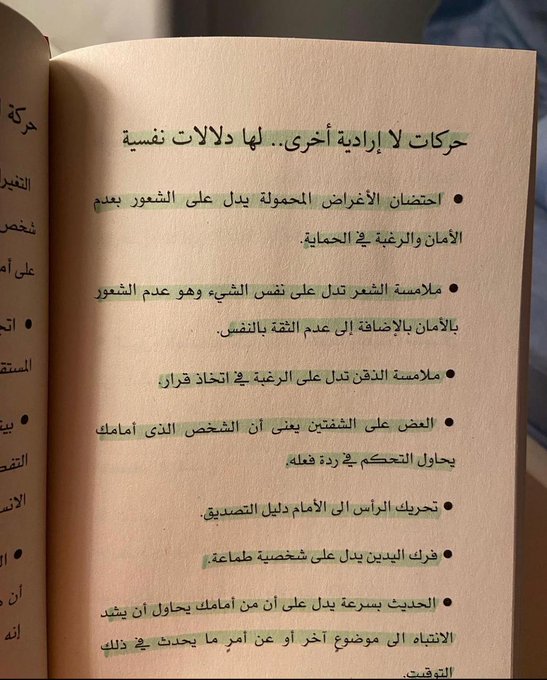 حركات لا إرادية أخرى.. لها دلالات نفسية
● احتضان الأغراض المحمولة يدل على الشعور بعدم
الأمان والرغبة في الحماية.
● ملامسة الشعر تدل على نفس الشيء وهو عدم الشعور
بالأمان بالإضافة إلى عدم الثقة بالنفس.
● ملامسة الذقن تدل على الرغبة في اتخاذ قرار.
● العض على الشفتين يعنى أن الشخص الذى أمامك
يحاول التحكم في ردة فعله.
● تحريك الرأس الى الأمام دليل التصديق.
● فرك اليدين يدل على شخصية طماعة.
● الحديث بسرعة يدل على أن من أمامك يحاول أن يشد
الانتباه الى موضوعٍ آخر أو عن أمرٍ ما يحدث في ذلك
التوقيت.
حركة
شخص
على أم
●
●
●
أن
إنه